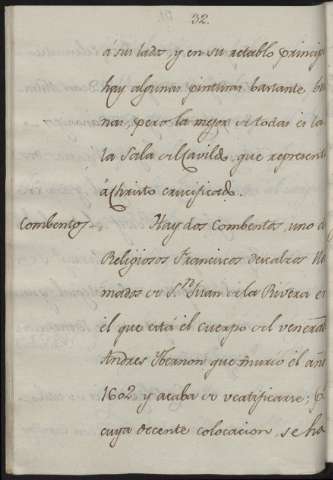 32.
á sus lado, y en su retablo princip
hay algunas pinturas bastante bu
nas, pero la mejor de todas es la
la Sala del Cavildo, que represent
á Christo crucificado.
Combentos. Hay dos Combentos, uno d
Religiosos Franciscos descalzos lla
mados de S.n Juan de la Rivera e
el que está el cuerpo del venera
Andres Ibernon que murio el añ
1602 y acaba de veatificarse;
cuya decente colocacion, se ha